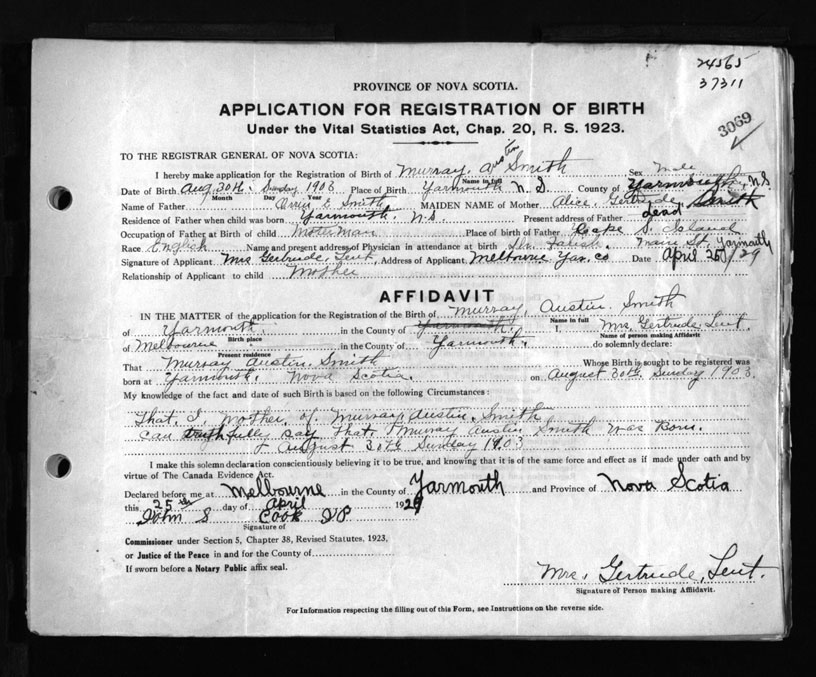 24565
37311
3069
PROVINCE OF NOVA SCOTIA.
APPLICATION FOR REGISTRATION OF BIRTH
Under the Vital Statistics Act, Chap. 20, R. S. 1923.
TO THE REGISTRAR GENERAL OF NOVA SCOTIA:
I hereby make application for the Registration of Birth of Murray, Austin Smith Sex Male
Name in full
Date of Birth Aug 30th. Sunday 1903 Place of Birth Yarmouth N.S. County of Yarmouth, N.S.
Month Day Year
Name of Father E Smith MAIDEN NAME of Mother Alice, Gertrude, Smith
Residence of Father when child was born Yarmouth. N.S. Present address of Father dead
Occupation of Father at Birth of child Motorman Place of birth of Father Cape S. Island
Race English Name and present address of Physician in attendance at birth Main St, Yarmouth
Signature of Applicant Mrs Gertrude, Lent, Address of Applicant Melbourne Yar. Co Date April 25th/29
Relationship of Applicant to child Mother
AFFIDAVIT
IN THE MATTER of the application for the Registration of the Birth of Murray, Austin Smith
Name in full
of Yarmouth in the County of Yarmouth. I, Mrs, Gertrude, Lent.
Birth place Name of person making Affidavit
of Melbourne in the County of Yarmouth. do solemnly declare:
Present residence
That Murray Austin, Smith Whose Birth is sought to be registered was
born at Yarmouth. Nova Scotia. on August 30th, Sunday 1903.
My knowledge of the fact and date of such Birth is based on the following Circumstances:
That. I, mother. of Murray, Austin. Smith
can truthfully say That. Murray Austin Smith was Born.
August 30th Sunday 1903
I make this solemn declaration conscientiously believing it to be true, and knowing that it is of the same force and effect as if made under oath and by
virtue of The Canada Evidence Act.
Declared before me at Melbourne in the County of Yarmouth and Province of Nova Scotia
this 25th day of April 1929
John S Cook JP
Signature of
Commissioner under Section 5, Chapter 38, Revised Statutes, 1923,
or Justice of the Peace in and for the County of
If sworn before a Notary Public affix seal.
Mrs, Gertrude, Lent.
Signature of Person making Affidavit.
For Information respecting the filling out of this Form, see Instructions on the reverse side.